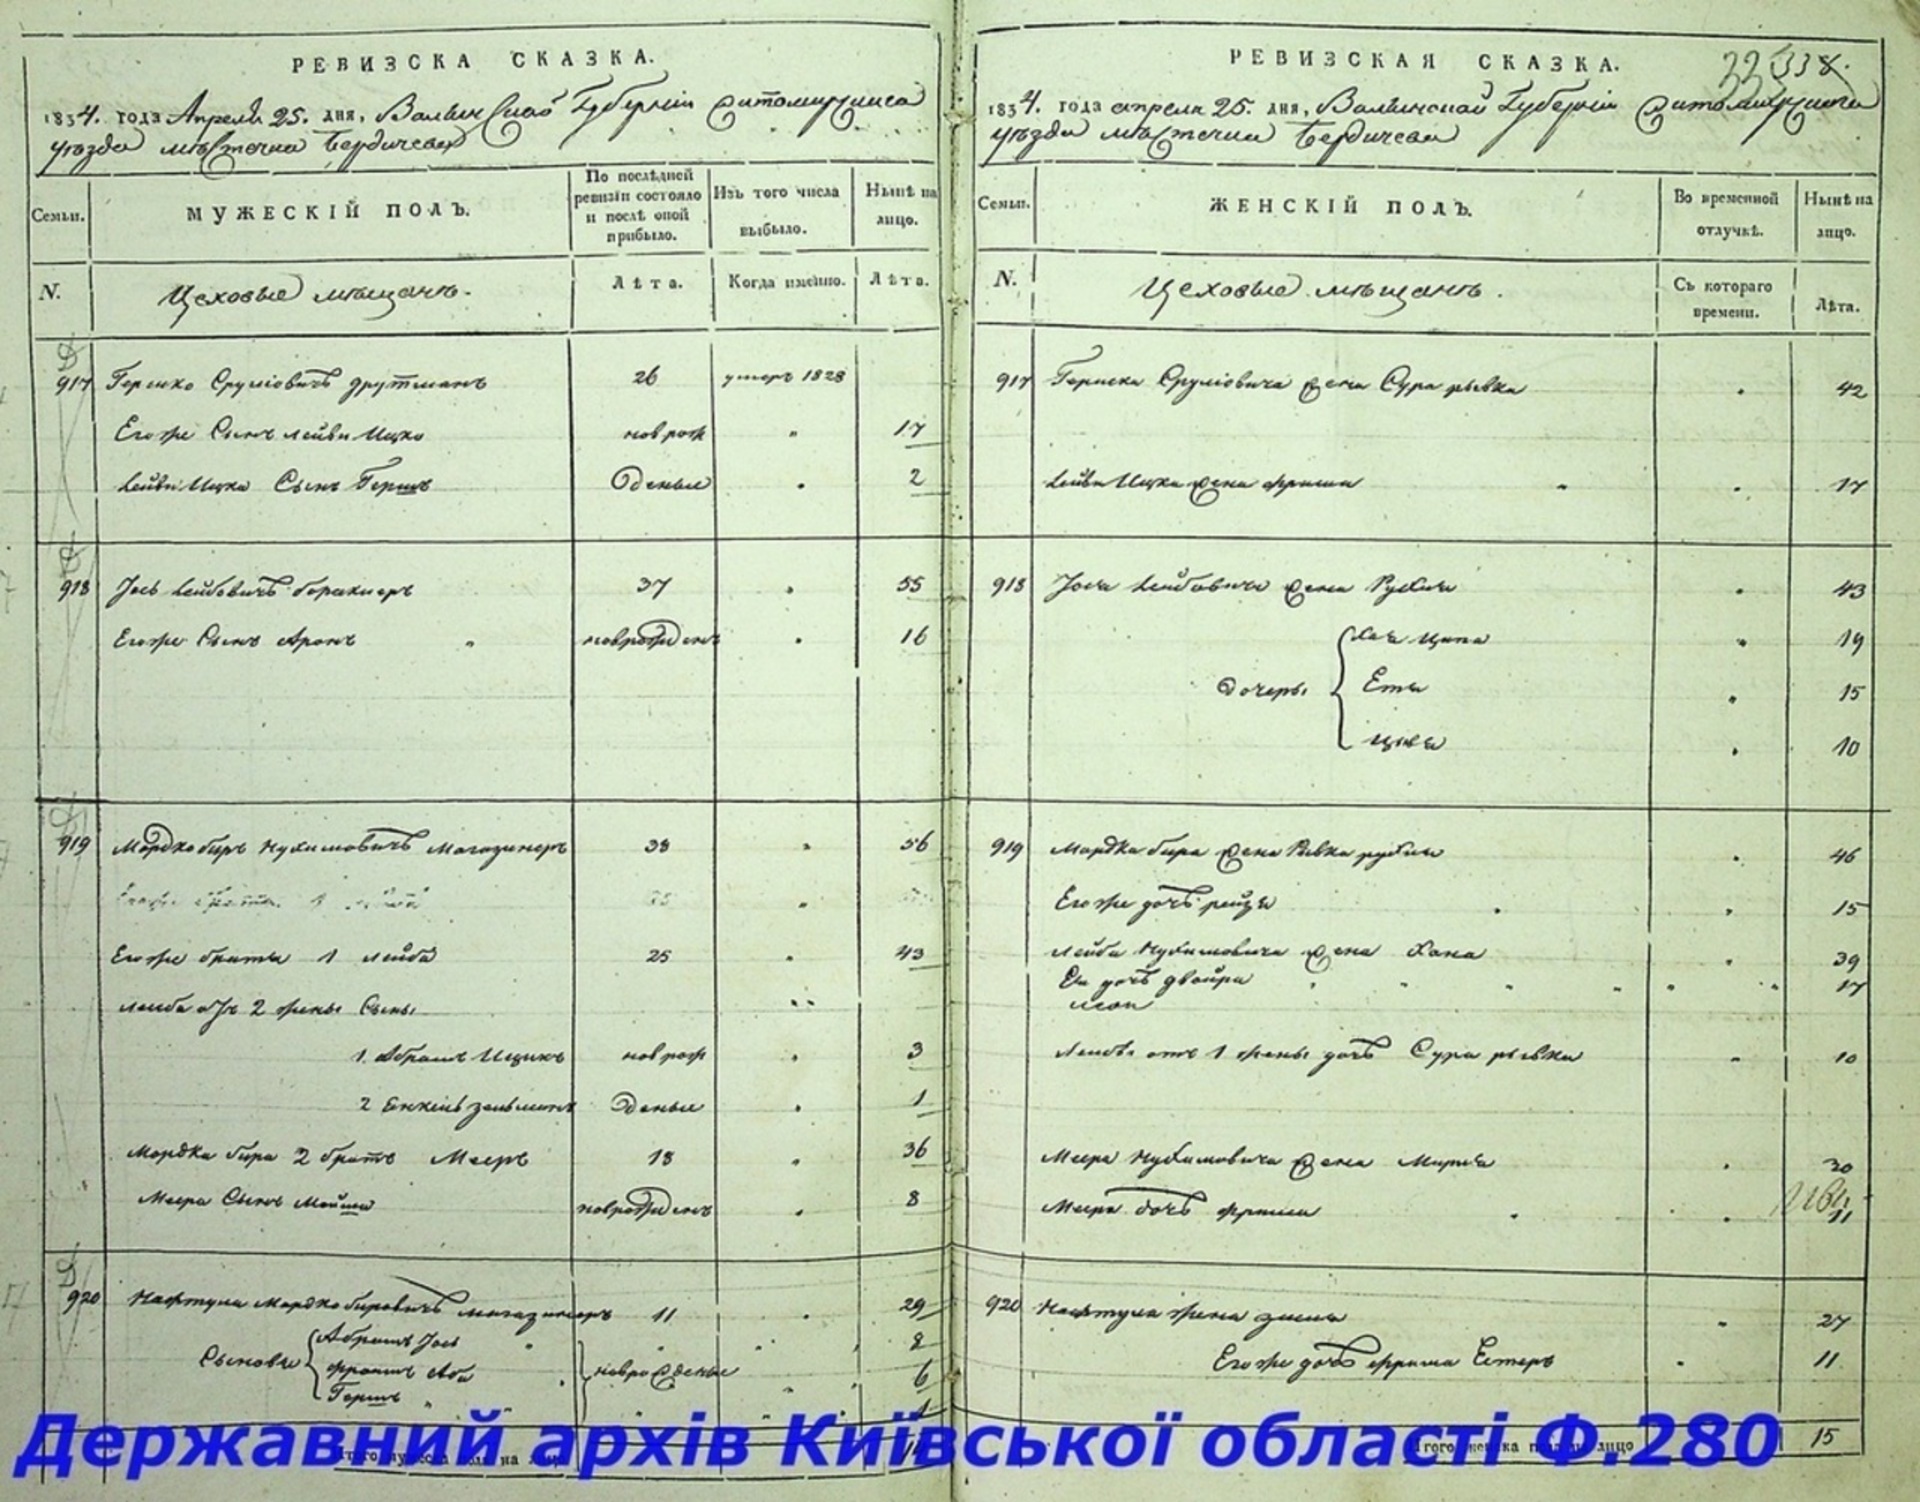 РЕВИЗСКА СКАЗКА.
1834. года Апреля 25. дня, Волынской Губернии Житомирскаго
уезда местечка Бердичева
Семьи.
МУЖЕСКІЙ ПОЛЪ.
По послѣдней ревизіи состояло и послѣ оной прибыло.
Изъ того числа выбыло.
Нынѣ на лицо.
N.
Цеховые мещане.
Лѣта.
Когда именно.
Лѣта.
917 Гершко Срулiовичъ Друтманъ 26 умеръ 1828
Егоже Сынъ Лейви Ицко новрож 17
Лейви Ицка Сынъ Гершъ Денные 2
918 Іось Лейбовичъ 37 55
Егоже Сынъ Аронъ новорожденъ 16
919 Мордко биръ Нухимовичъ Магазинеръ 38 56
Егоже братья 1 Лейба 25 43
Лейба отъ 2 жены Сыны
1. Абрамъ Ицикъ новрож 3
2 Зельманъ Денные 1
Мордка бира 2 братъ Мееръ 18 36
Меера Сынъ Мойша новрожденъ 8
920 Нафтула Мордко бировичъ Магазинеръ 11 29
Сыновья Абрамъ Іось 8
Фроимъ Аба новрожденые 6
Гершъ 1
РЕВИЗСКАЯ СКАЗКА.
338.
1834. года апреля 25. дня, Волынской Губернии Житомирскаго
уезда местечка Бердичева
Семьи.
ЖЕНСКІЙ ПОЛЪ.
Во временной отлучкѣ.
Нынѣ на лицо.
N.
Цеховые мещане.
Съ котораго времени.
Лѣта.
917 Гершка Срулiовича жена Сура рывка 42
Лейви Ицка жена Фрима 17
918 Іося Лейбовича жена Рухля 43
Хая Ципа 19
Дочеры Етя 15
Цывя 10
919 Мордка бира жена Рывка рухля 46
Егоже дочъ рейзя 15
Лейба Нухимовича жена Хана 39
Ея дочъ двойра 17
Лейбы отъ 1 жены дочъ Сура рывка 10
Меера Нухимовича жена Мирля 30
Меера дочъ Фрима 11
920 Нафтула жена 27
Егоже дочъ Фрима Естеръ 11
Итого женска полу на лицо 15
Державний архів Київської області Ф.280